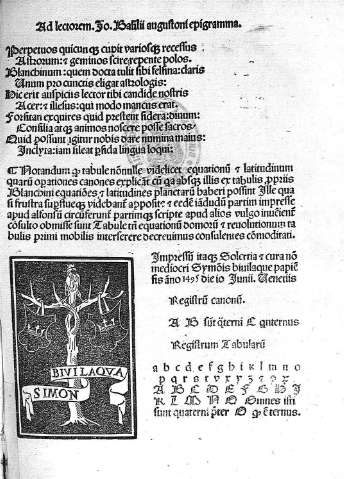 Ad lectorem. Jo. Basilii augustoni epigramma.
Perpetuos quicunq; cupit variosq; recessus
Astrorum: et geminos scire repente polos.
Blanchinum: quem docta tulit sibi felsina: claris
Unum pro cunctis eligat astrologis:
Hic erit auspiciis lector tibi candide nostris
Acer: et illesus: qui modo mancus erat.
Forsitan exquires quid prestent sidera: divum
Consilia atq; animos noscere posse sacros
Quid possunt igitur nobis dare numina maius:
Inclyta: iam sileat
lingua loqui:
Notandum q; tabule nonnulle videlicet equationũ et latitudinum
quarũ opationes canones explicãt cũ
absq; illis ex tabulis
Blanchini equatiões et latitudines planetarũ haberi possint Ille qua
si frustra
videbant apposite: et eedẽ
partim impresse
apud alfonsũ
partimq; scripte apud alios vulgo
cõsulto obmisse sunt Tabule tm̃ equationũ domorũ et revolutionum ta
bulis primi mobilis interserere decrevimus consulentes cõmoditati.
Impressũ itaq; Solertia et cura nõ
mediocri Symõis bivilaque papiẽ
sis ãno 1495 die 10 Junii. Venetiis
Registrũ canonũ.
A B sũt q̃terni C quternus
Registrum Tabularũ
a b c d e f g h i k l m n o
p q r s t v x y z
A B C D E F G H I
K L M N O Omnes isti
sunt quaterni p̃ter O q; ẽ ternus.
BIVILAQVA
SIMON